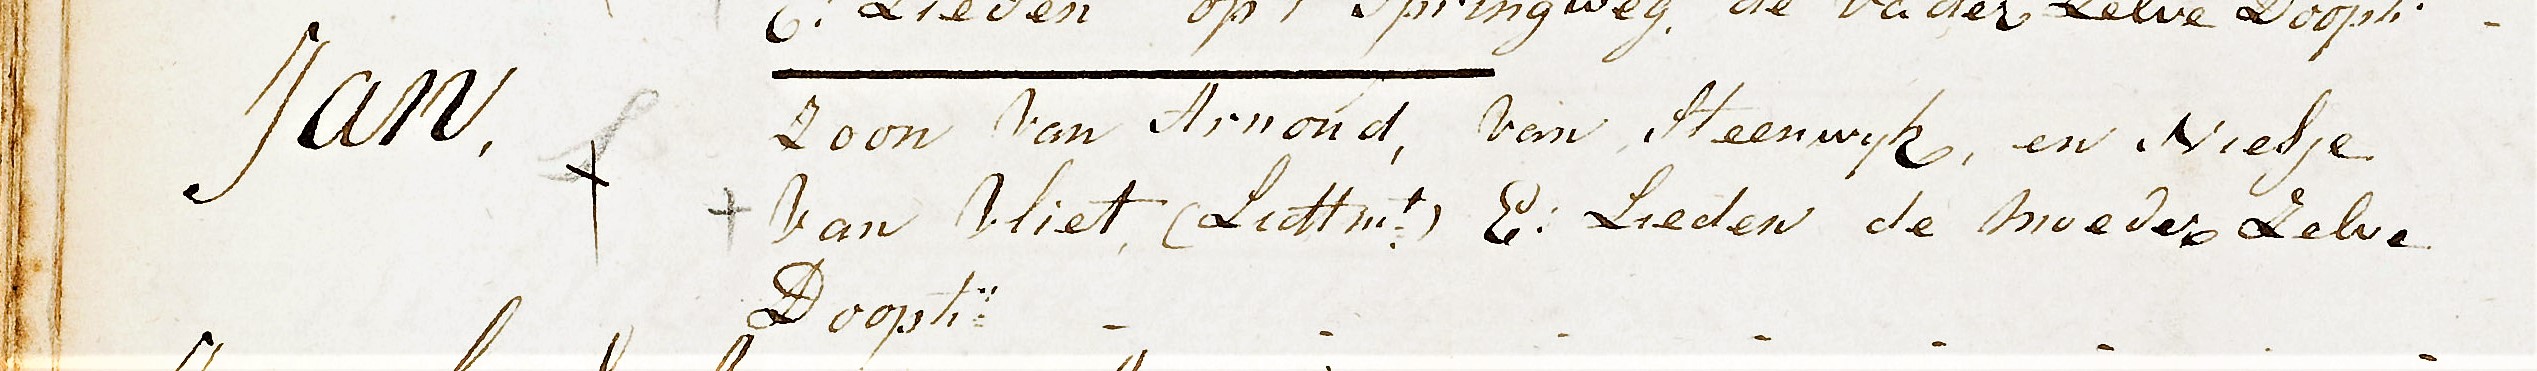 E: Lieden op 't Springweg. de vader Zelve Doopt: -
Jan, Zoon van Arnond, van Steenwyk, en Niesje
van Vliet, (Lidtmt:) E: Lieden de moeder Zelve
Doopt: - - - - - - -